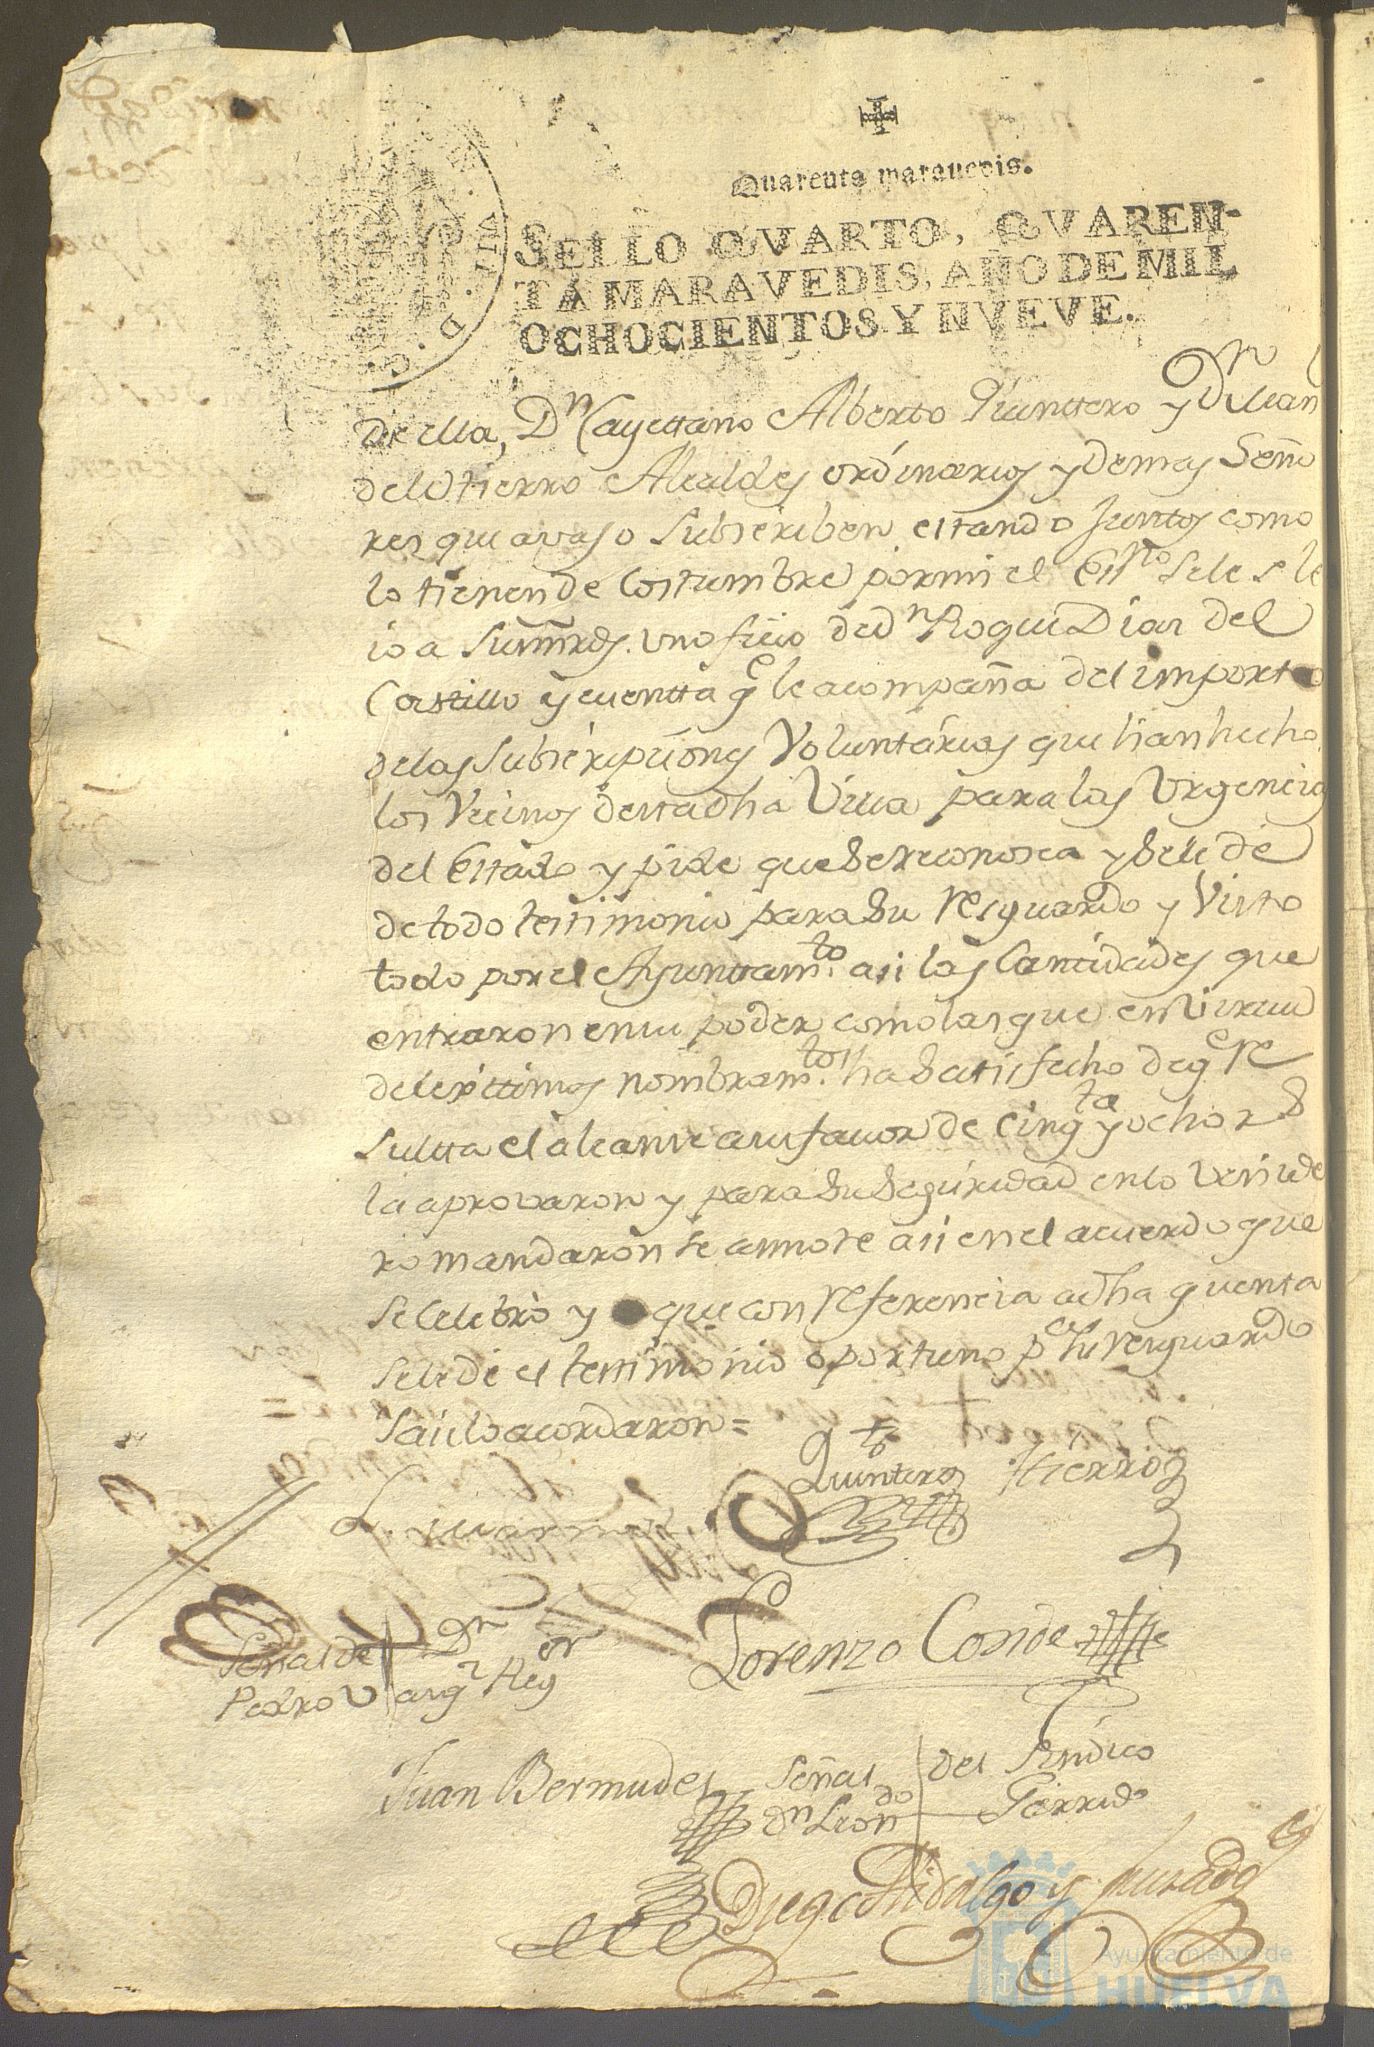 Quarenta maravedis.
SELLO QVARTO, QVAREN-
TA MARAVEDIS, AÑO DE MIL
OCHOCIENTOS Y NVEVE.
de ella, Dn Cayettano Alberto Quinttero y Dn Juan
del Hierro Alcaldes ordinarios y demas Seño
res que avajo subscriben estando juntos como
lo tienen de Costumbre por mi el Essno se les le
io a sus mrds. un oficio de dn Roque Dias del
Castillo y cuentta qe le acompaña del importe
de las subscripciones Voluntarias que han hecho
los Vecinos de esta dha Villa para las Urgencias
del Estado y pide que se reconosca y se le de
de todo testimonio para su resguardo y Visto
todo por el Ayunttamto. asi las Cantidades que
entraron en su poder como las que en Virtud
de lexittimos nombramtos. ha satisfecho de qe re
sultta el alcanse a su favor de cinqta y ocho rs
la aprovaron y para su seguridad en lo venide
ro mandaron se annote asi en el acuerdo que
se celebró y que con referencia a dha quenta
se le dé el testimonio oportuno pa su resguardo
y asi lo acordaron =
Quintero Hierro
Lorenzo Conde
Señal de Dn
Pedro Vargs Regor
Juan Bermudes
Señal del Sindico
dn Leondo Garrido
Diego Hidalgo y Jurado
Ayuntamiento de
HUELVA